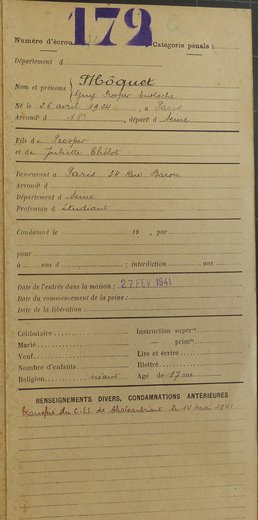 172
Numéro d'écrou
Catégorie pénale :
Département d
Môquet
Nom et prénoms
Guy Prosper Eustache
Né le 26 avril 1924, à Paris
Arrond' d 18e, départ' d Seine
Fils de Prosper
et de Juliette
Demeurant à Paris 34 Rue Baron
Arrond' d
Département d Seine
Profession d étudiant
Condamné le 19 , par
pour
à ans d ; interdiction ans
Date de l'entrée dans la maison : 27 FEV 1941
Date du commencement de la peine :
Date de la libération :
Célibataire Instruction supérre
Marié — primre
Veuf Lire et écrire
Nombre d'enfants Illettré
Religion néant Agé de 17 ans
RENSEIGNEMENTS DIVERS, CONDAMNATIONS ANTÉRIEURES
transféré du C.SS. de Chateaubriant le 14 mai 1941